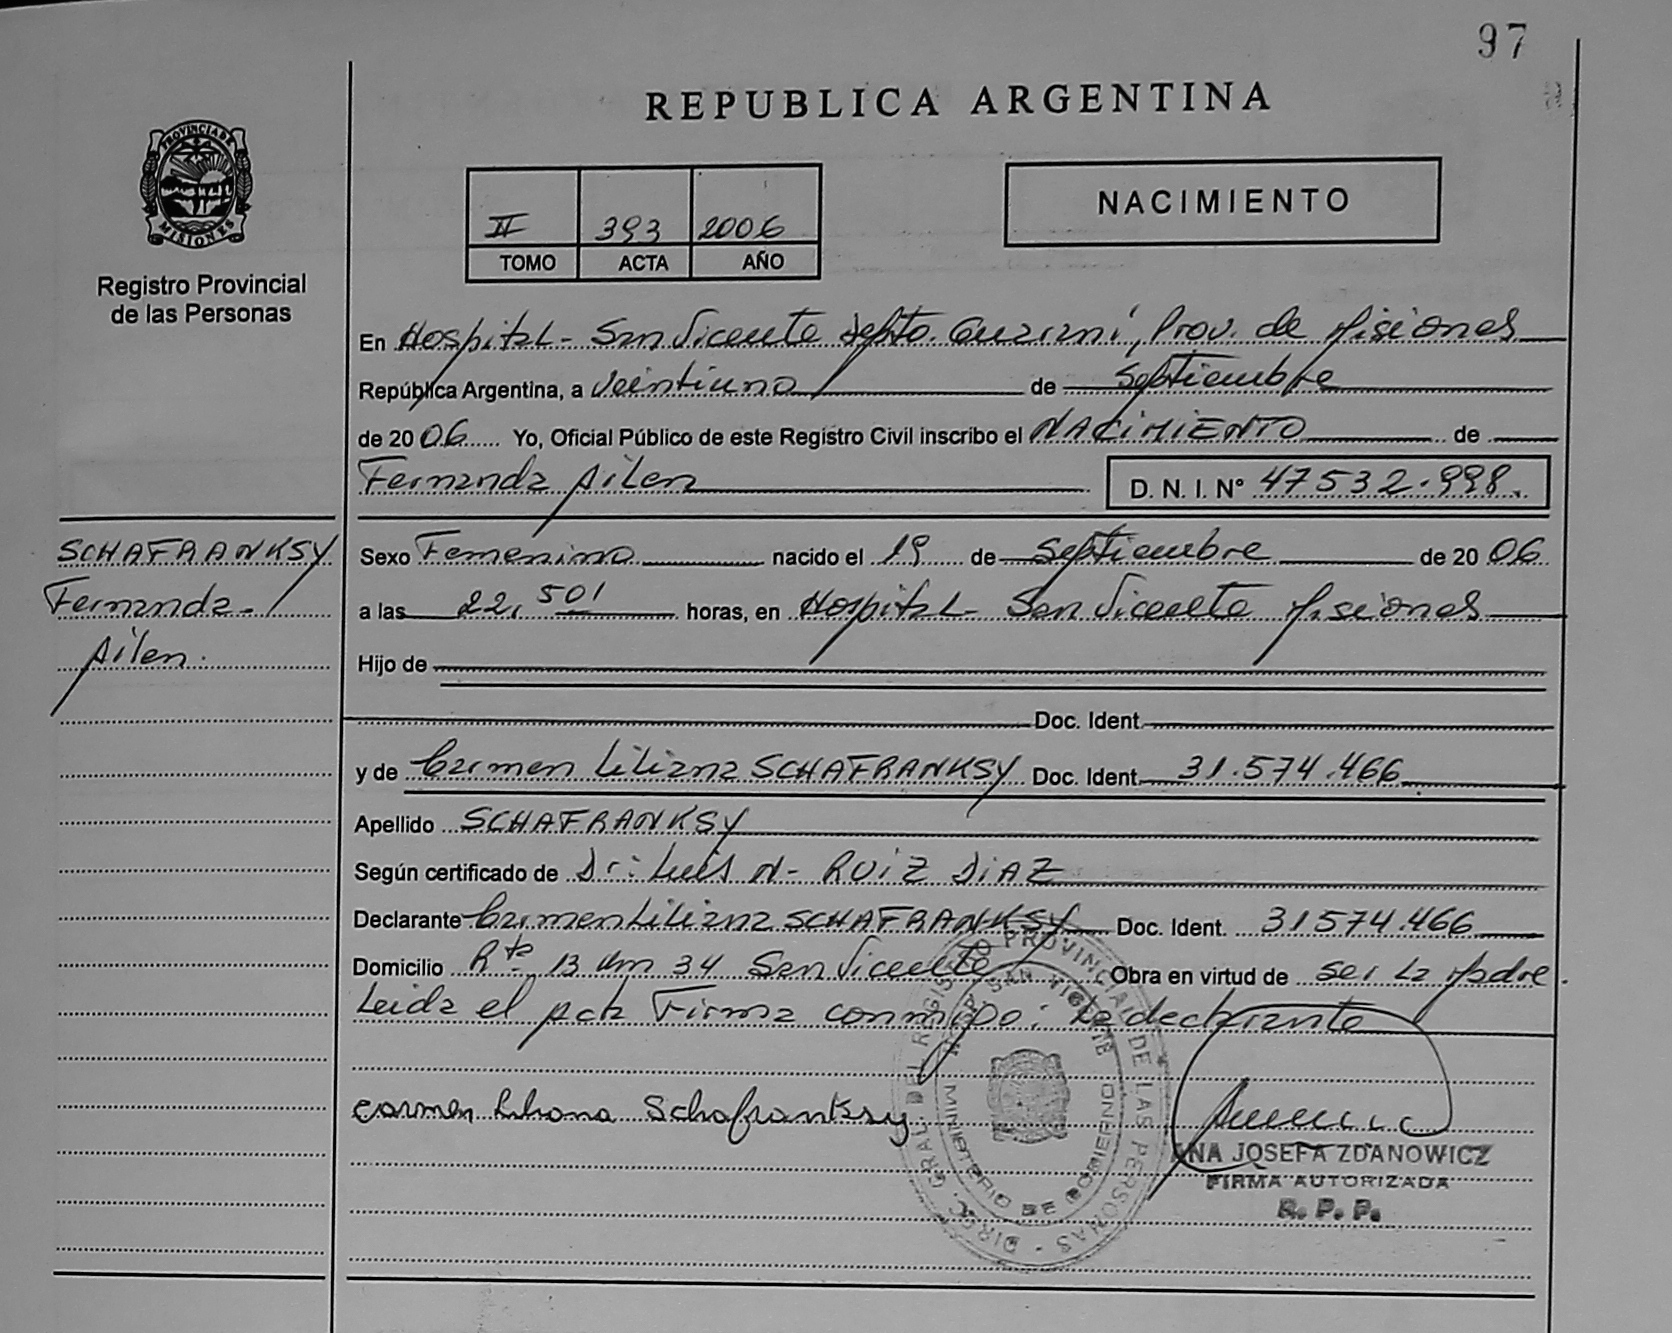 97
REPUBLICA ARGENTINA
PROVINCIA DE MISIONES
Registro Provincial
de las Personas
II 393 2006
TOMO ACTA AÑO
NACIMIENTO
En Hospital - San Vicente Depto. Guaraní, Prov. de Misiones
República Argentina, a Veintiuno de Septiembre
de 2006 Yo, Oficial Público de este Registro Civil inscribo el NACIMIENTO de
Fernanda Ailen D. N. I. Nº 47532.998.
SCHAFRANKSY
Fernanda -
Ailen.
Sexo Femenino nacido el 19 de Septiembre de 2006
a las 22,50 horas, en Hospital - San Vicente Misiones
Hijo de
Doc. Ident.
y de Carmen Liliana SCHAFRANKSY Doc. Ident. 31.574.466
Apellido SCHAFRANKSY
Según certificado de Dr: Luis N - RUIZ DIAZ
Declarante Carmen Liliana SCHAFRANKSY Doc. Ident. 31574.466
Domicilio Rta. 13 Km 34 San Vicente Obra en virtud de ser la Madre.
Leida el acta Firma conmigo: La declarante
Carmen Liliana Schafranksy
DIREC. GRAL DEL REGISTRO PROVINCIAL DE LAS PERSONAS
SAN VICENTE
MINISTERIO DE GOBIERNO
ANA JOSEFA ZDANOWICZ
FIRMA AUTORIZADA
R. P. P.